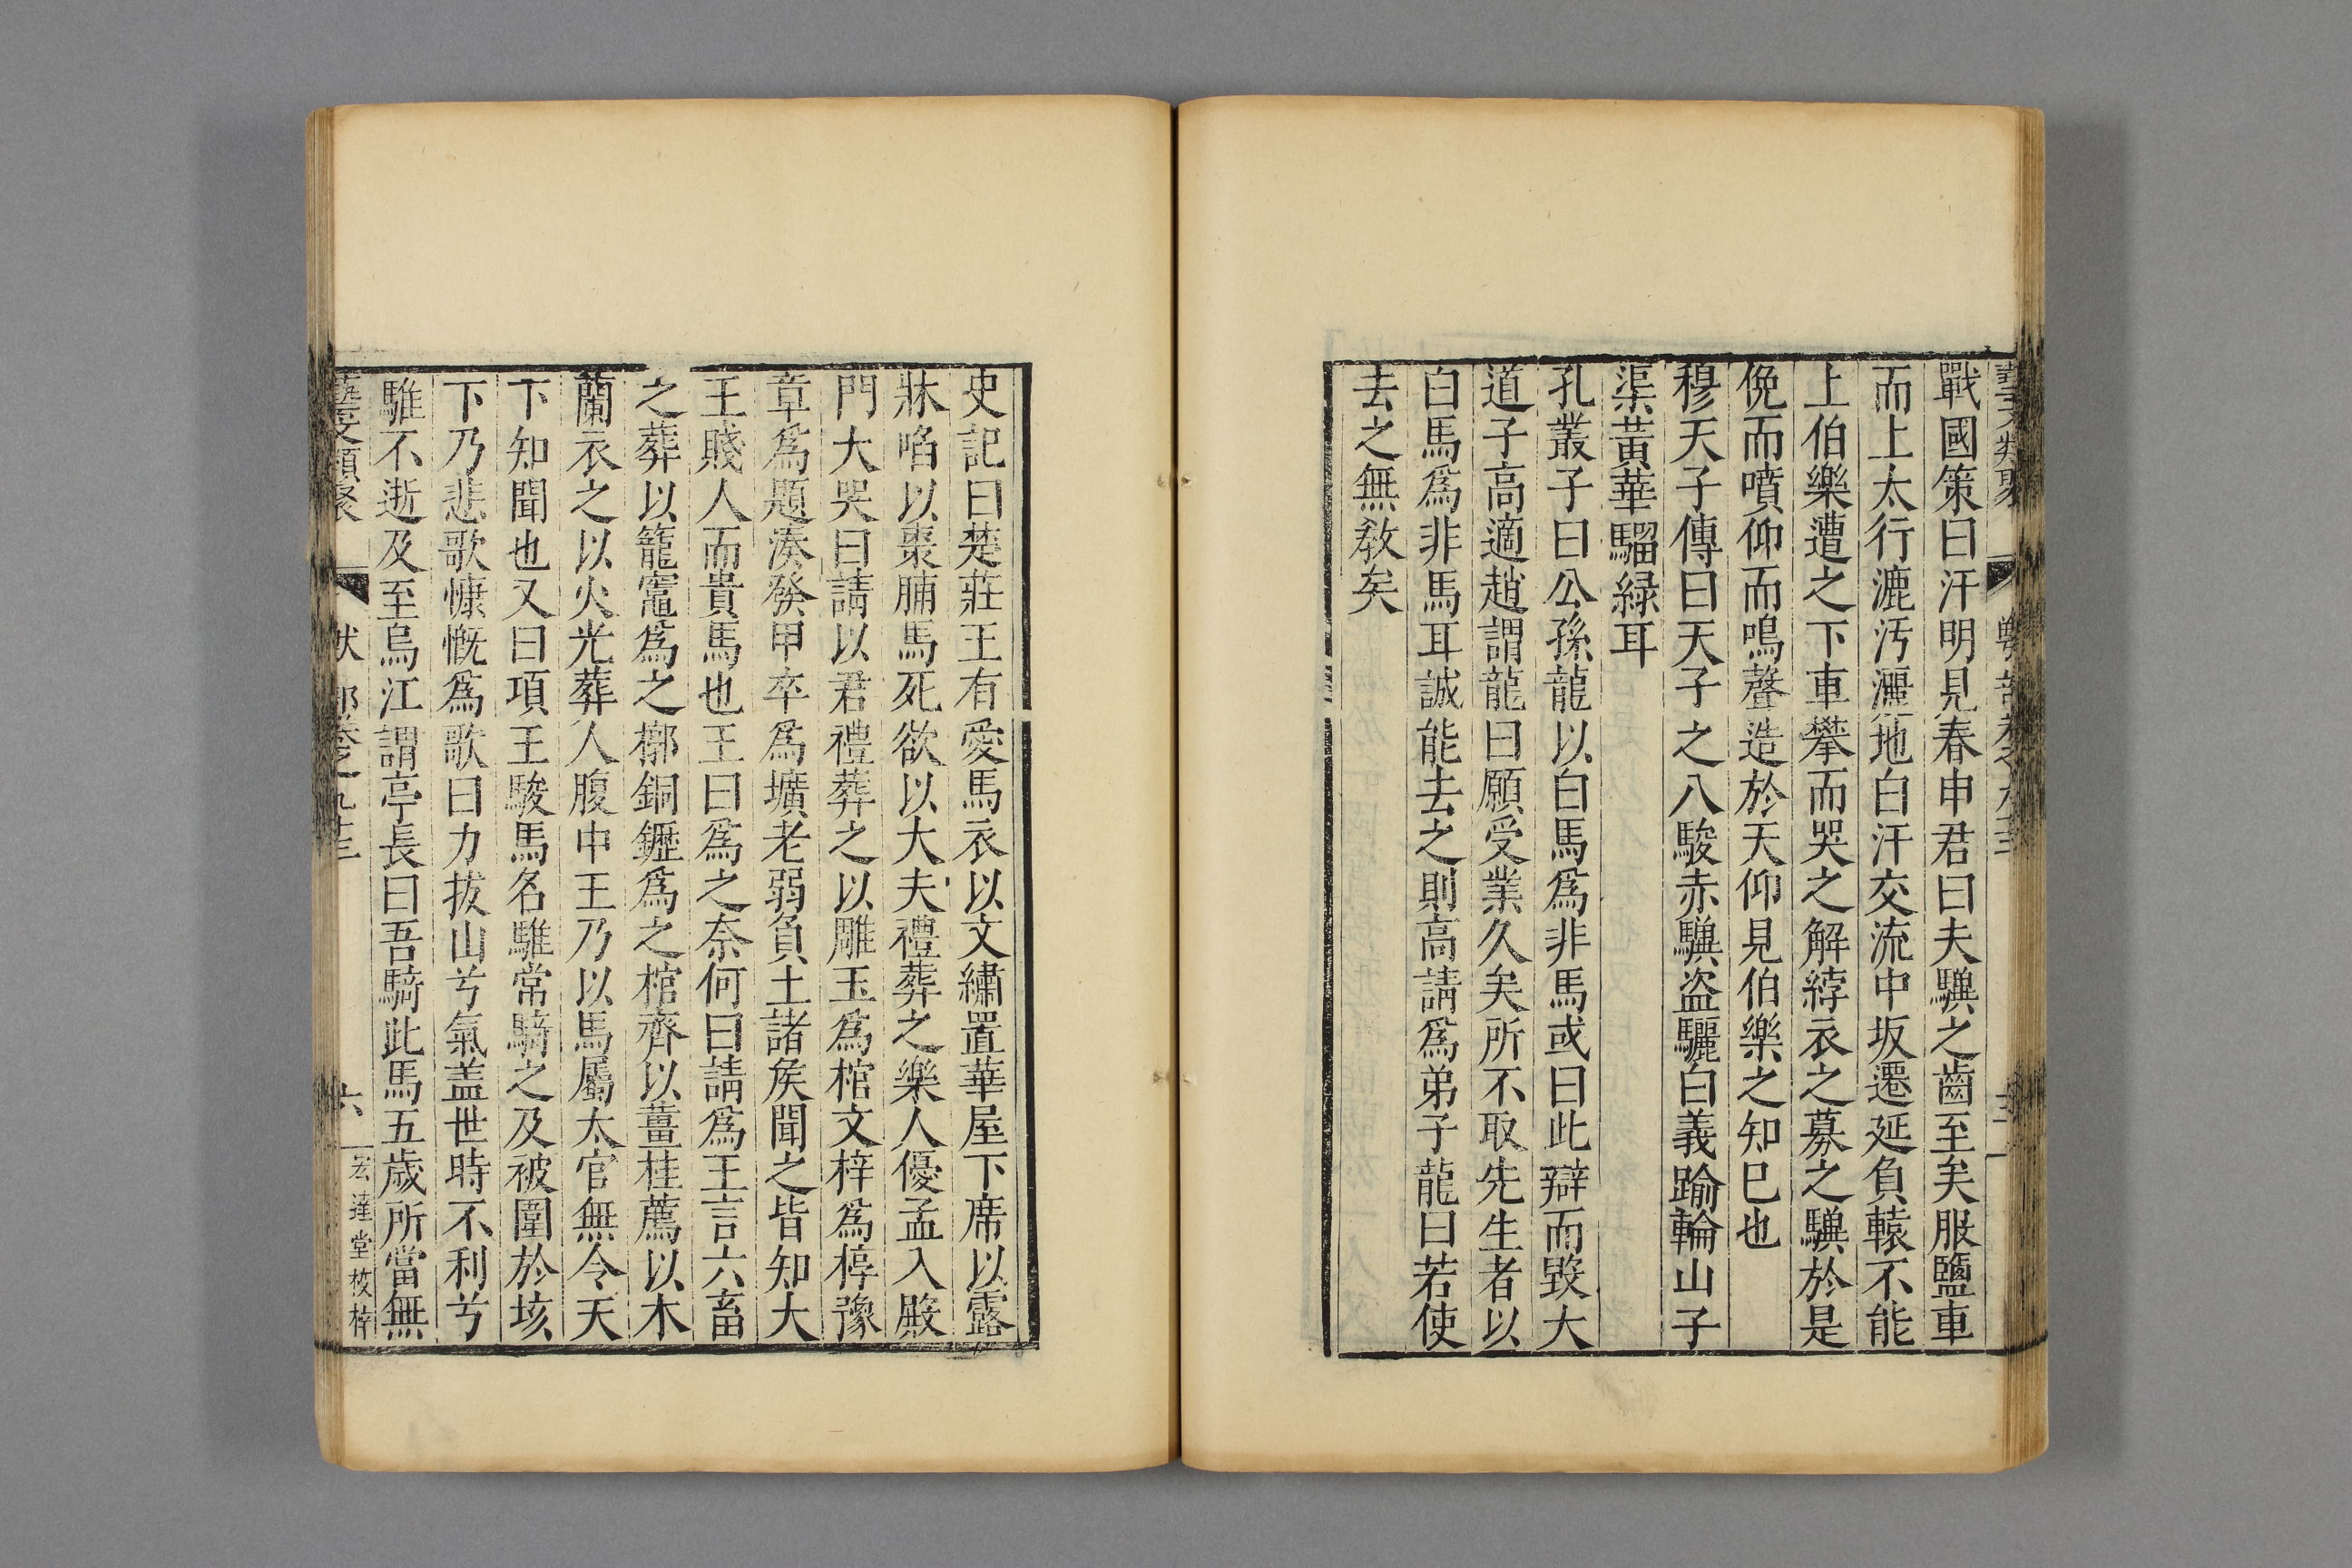 戰國策曰汗明見春申君曰夫驥之齒至矣服鹽車
而上太行漉汚灑地白汗交流中坂遷延負轅不能
上伯樂遭之下車攀而哭之解紵衣之幕之驥於是
俛而噴仰而鳴聲造於天仰見伯樂之知已也
穆天子傳曰天子之八駿赤驥盗驪白義踰輪山子
渠黃華騮緑耳
孔叢子曰公孫龍以白馬爲非馬或曰此辯而毀大
道子高適趙謂龍曰願受業久矣所不取先生者以
白馬爲非馬耳誠能去之則高請爲弟子龍曰若使
去之無教矣
史記曰楚莊王有愛馬衣以文繡置華屋下席以露
牀啗以棗脯馬死欲以大夫禮葬之樂人優孟入殿
門大哭曰請以君禮葬之以雕玉爲棺文梓爲椁豫
章爲題湊發甲卒爲壙老弱負土諸矦聞之皆知大
王賤人而貴馬也王曰爲之奈何曰請爲王言六畜
之葬以籠竈爲之槨銅鑩爲之棺齊以薑桂薦以木
蘭衣之以火光葬人腹中王乃以馬屬太官無令天
下知聞也又曰項王駿馬名騅常騎之及被圍於垓
下乃悲歌慷慨爲歌曰力拔山兮氣盖世時不利兮
騅不逝及至烏江謂亭長曰吾騎此馬五歲所當無
六
宏達堂校梓